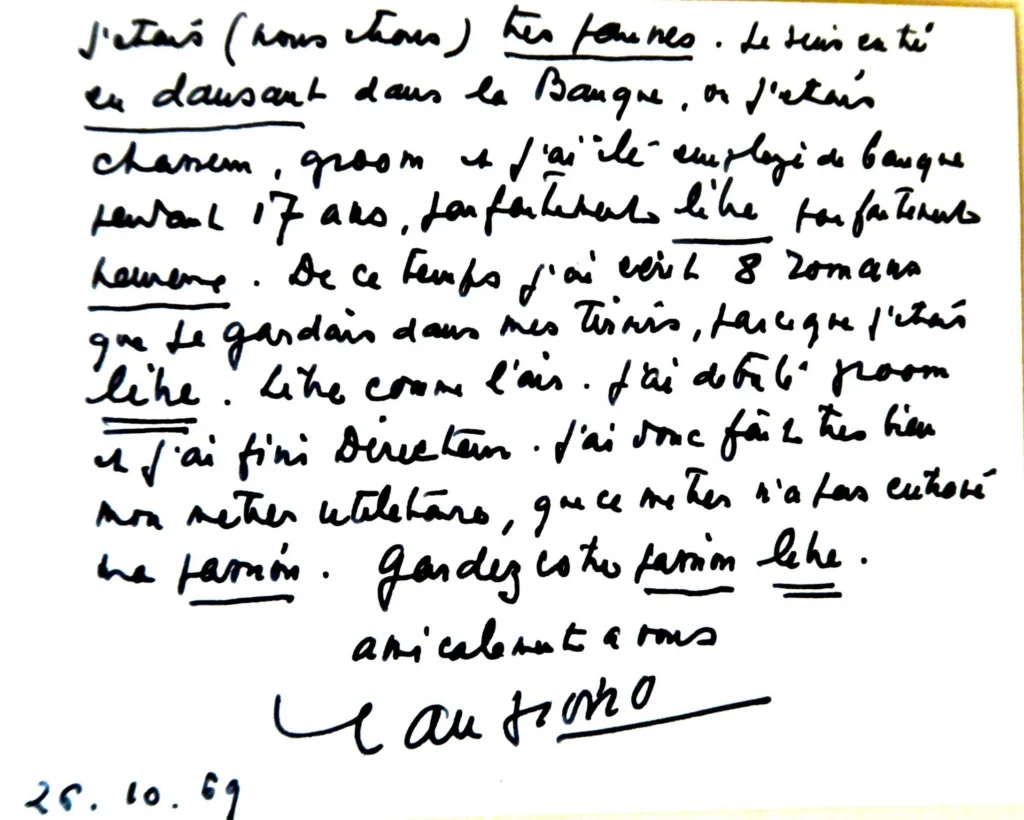 j'étais (nous étions) très pauvres. Je suis entré
en dansant dans la Banque, où j'étais
chasseur, groom et j'ai été employé de banque
pendant 17 ans, parfaitement libre parfaitement
heureux. De ce temps j'ai écrit 8 romans
que je gardais dans mes tiroirs, parce que j'étais
libre. Libre comme l'air. J'ai débuté groom
et j'ai fini Directeur. J'ai donc fait très bien
mon métier utilitaire, que ce métier n'a pas entravé
ma passion. Gardez votre passion libre.
amicalement à vous
Jean Giono
26.10.69